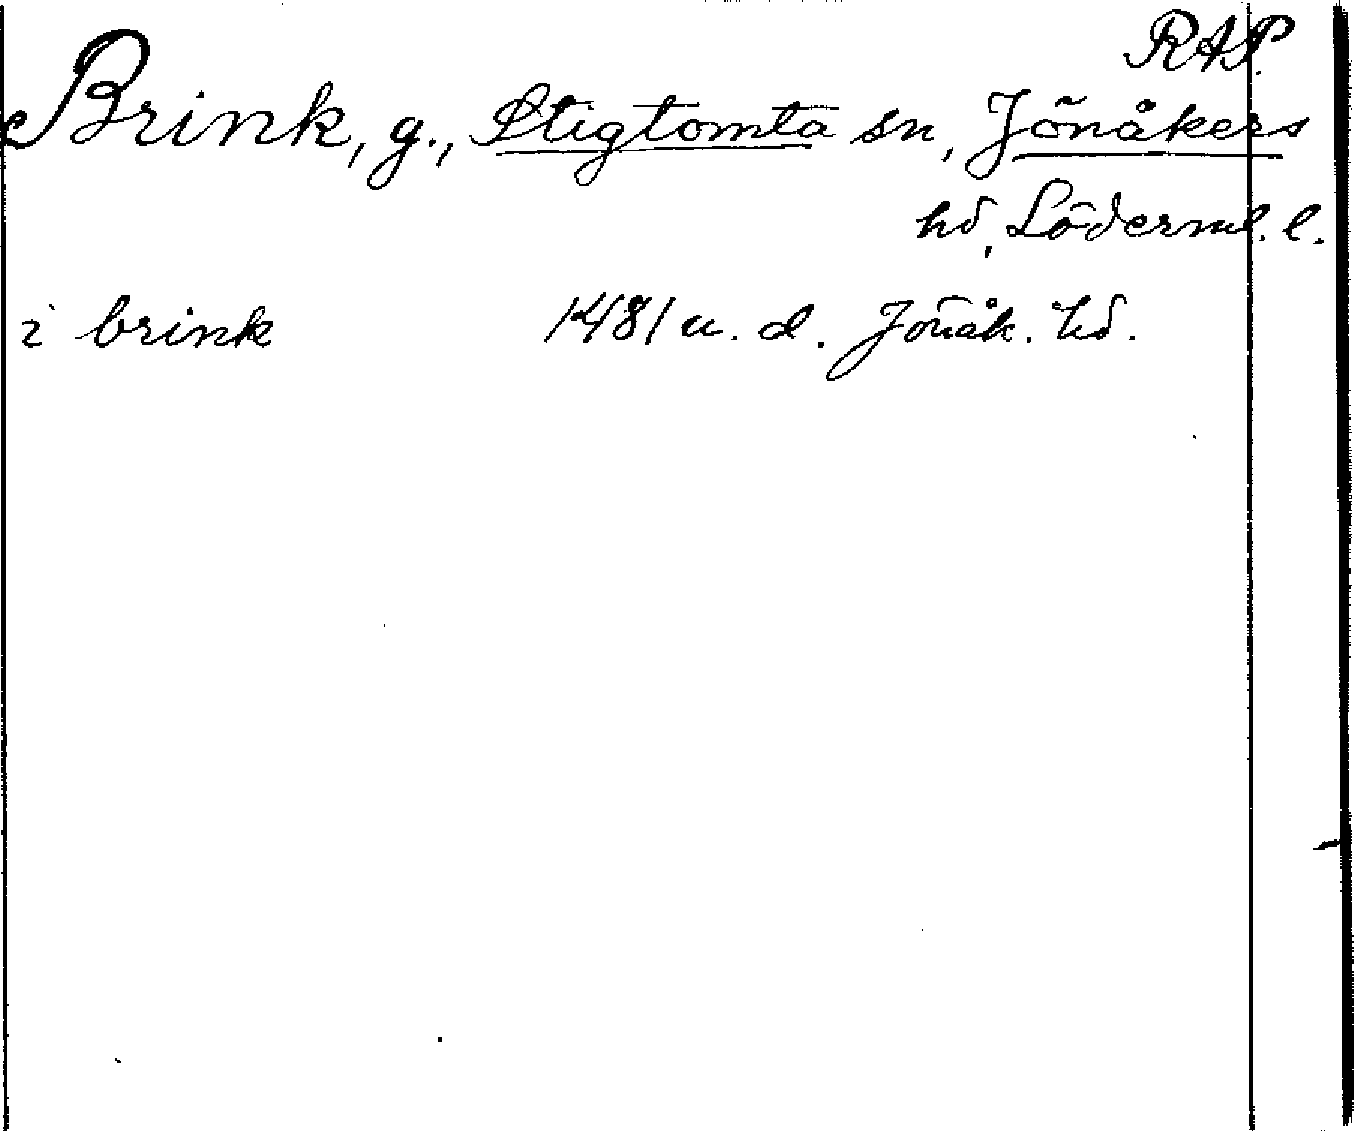 RAP.
Brink, g., Stigtomta sn, Jönåkers
hd, Söderml. l.
i brink 1481 u. d. Jönåk. hd.